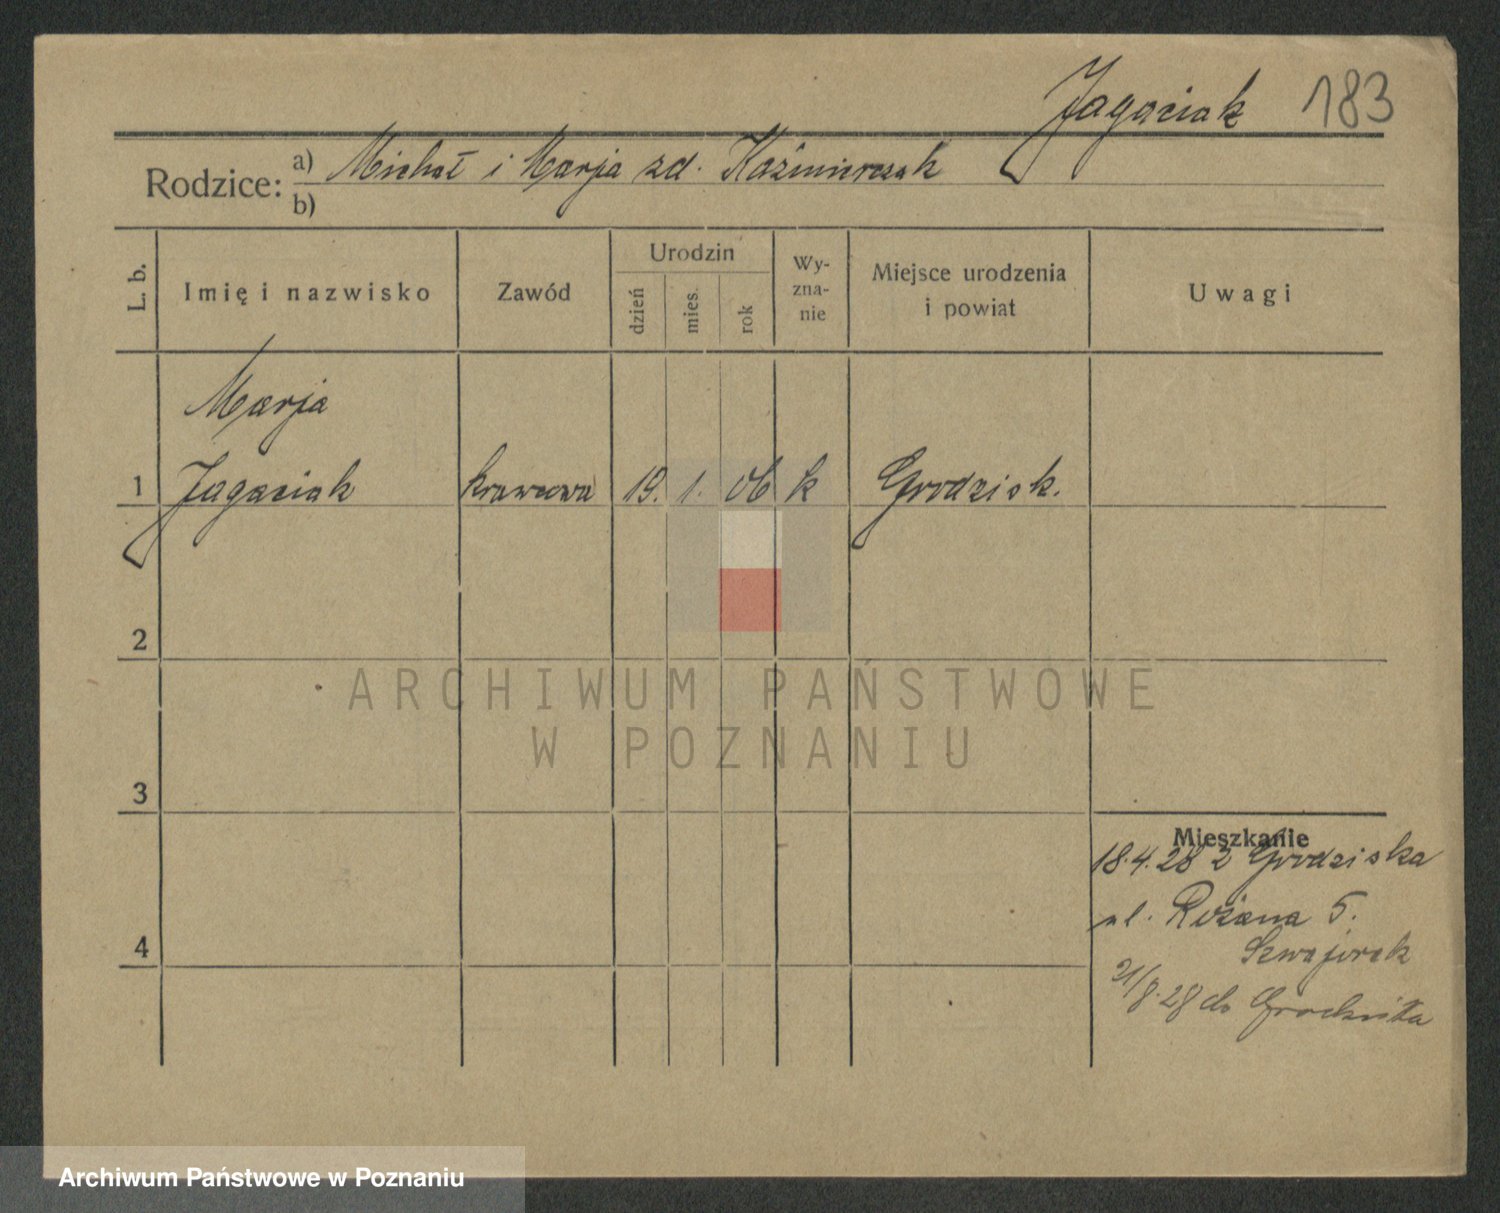 Jagaciak 183
Rodzice: a) Michał i Marja zd. Kaźmierczak
b)
L. b. Imię i nazwisko Zawód Urodzin dzień mies. rok Wy-zna-nie Miejsce urodzenia i powiat Uwagi
Marja
1 Jagaciak krawcowa 19. 1. 06 k Grodzisk.
2
ARCHIWUM PAŃSTWOWE
W POZNANIU
3
Mieszkanie
18.4.28 z Grodziska
ul. Różana 5.
Szwajorek
4
21/8.28 do
Archiwum Państwowe w Poznaniu